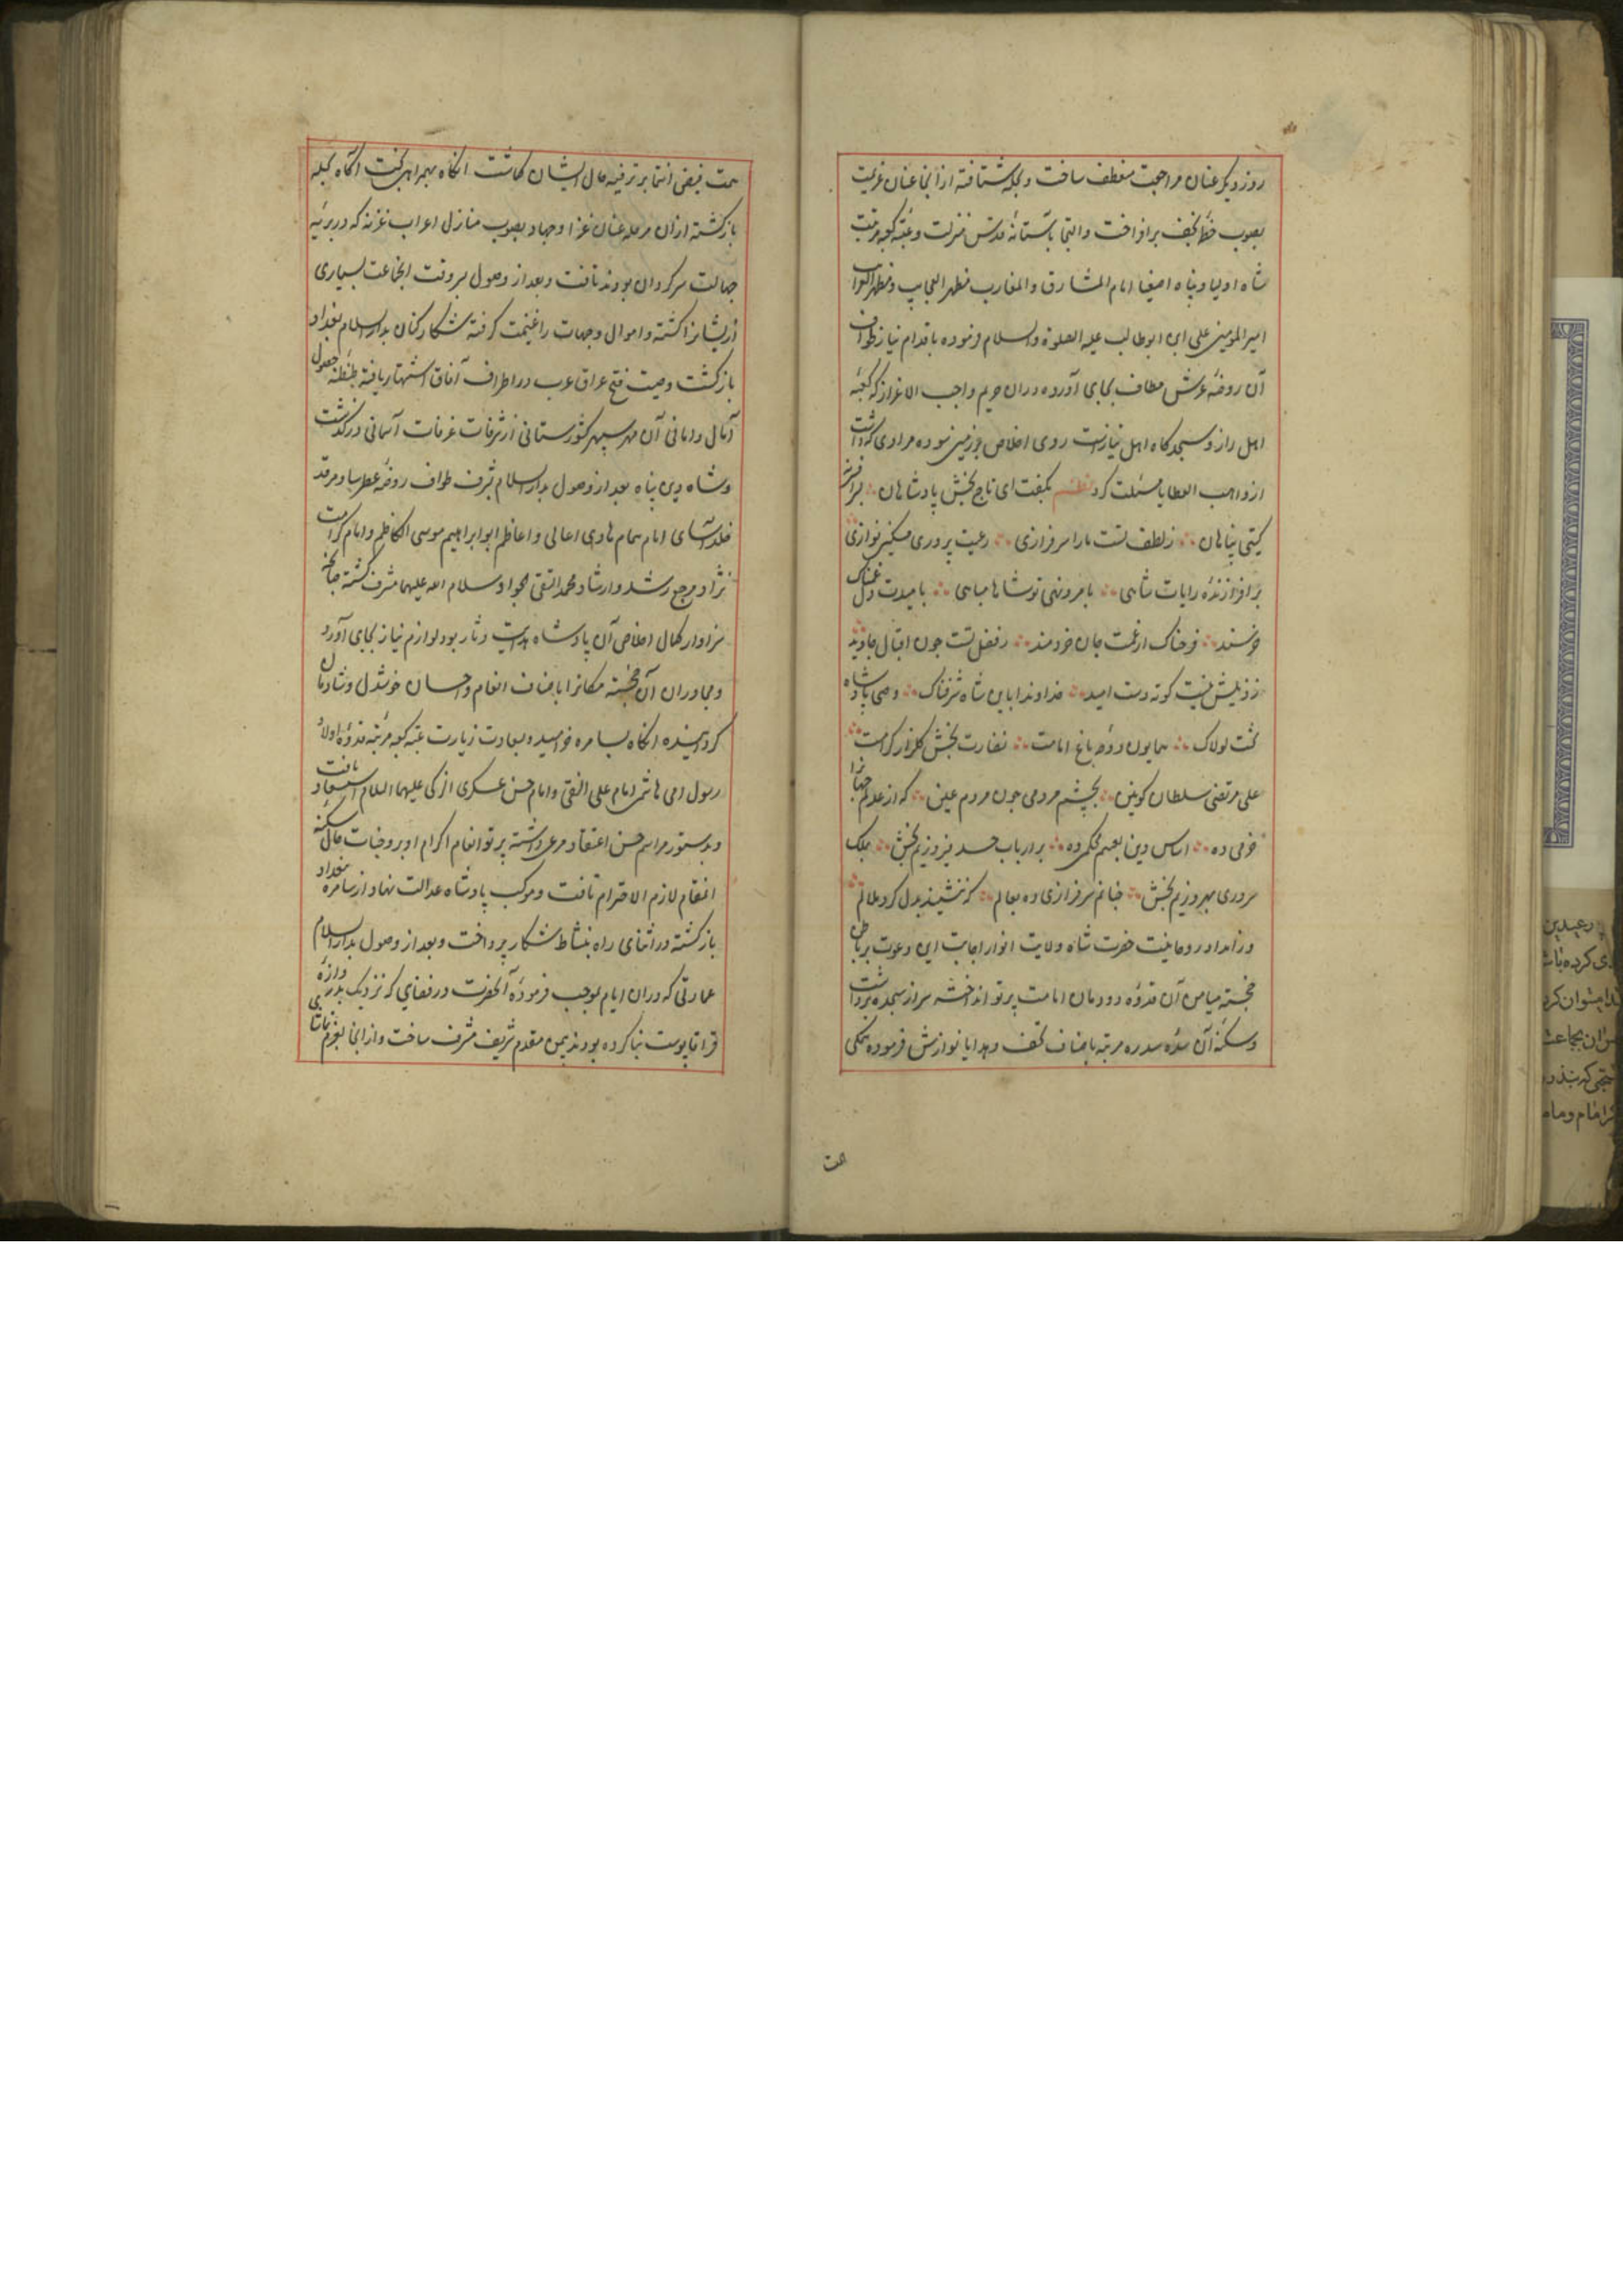 روز دیگر عنان مراجعت منعطف ساخت و بحله شتافته از آنجا عنان عزیمت
بصوب خطهٔ نجف برافراخت و التجا بآستانهٔ قدس منزلت و عتبهٔ کعبه مرتبت
شاه اولیا و پناه اصفیا امام المشارق و المغارب مظهر العجایب و مظهر الغرایب
امیر المومنین علی ابن ابوطالب علیه الصلوة والسلام فرموده باقدام نیاز طواف
آن روضهٔ عرش مطاف بجای آورده دران حریم واجب الاعزاز که کعبهٔ
اهل راز و سجدگاه اهل نیازست روی اخلاص بر زمین سوده مرادی که داشت
از واهب العطایا مسئلت کرد نظم بگفت ای تاج بخش پادشاهان برافرازنده
گیتی پناهان زلطف تست ما را سرفرازی رعیت پروری مسکین نوازی
برافرازندهٔ رایات شاهی بامر و نهی تو شاها مباهی بامیدت دل غمناک
خرسند فرحناک از غمت جان خردمند زفضل تست چون اقبال جاوید
زذیلش نیست کوته دست امید خداوندا باین شاه شرفناک وصی پادشاه
تخت لولاک همایون دوحهٔ باغ امامت نضارت بخش گلزار کرامت
علی مرتضی سلطان کونین بچشم مردمی چون مردم عین که از عدلم جهانرا
خرمی ده اساس دین بعهدم محکمی ده بر ارباب حسد فیروزیم بخش بملک
سروری بهروزیم بخش چنانم سرفرازی ده بعالم که ننشیند بدل گرد ملالم
و زامداد روحانیت حضرت شاه ولایت انوار اجابت این دعوت بر باطن
خجسته میامن آن قدوهٔ دودمان امامت پرتو انداخته سر از سجده برداشت
و سکنهٔ آن سدهٔ سدره مرتبه باصناف تحف و هدایا نوازش فرموده همگی
همت
همت فیض انتما بر ترفیه حال ایشان گماشت انگاه بهمراهی بخت آگاه بحله
بازگشته ازان مرحله عنان غزا و جهاد بصوب منازل اعراب غزیه که در بریهٔ
جهالت سرگردان بودند تافت و بعد از وصول بروقت انجماعت بسیاری
ازیشانرا کشته و اموال و جهات را غنیمت گرفته شکارکنان بدارالسلام بغداد
بازگشت وصیت فتح عراق عرب در اطراف آفاق اشتهار یافته طنطنهٔ حصول
آمال و امانی آن مهر سپهر کشورستانی از شرفات غرفات آسمانی درگذشت
و شاه دین پناه بعد از وصول بدارالسلام بشرف طواف روضهٔ عطرسا و مرقد
خلدآسای امام همام هادی اعالی و اعاظم ابو ابراهیم موسی الکاظم و امام کرامت
نژاد مرجع رشد و ارشاد محمد التقی الجواد سلام الله علیهما مشرف گشته چنانچه
سزاوار کمال اخلاص آن پادشاه هدایت دثار بود لوازم نیاز بجای آورد
و مجاوران آن خجسته مکانرا باصناف انعام و احسان خوشدل و شادمان
گردانیده انگاه بسامره خرامید و بسعادت زیارت عتبهٔ کعبه مرتبه قدوهٔ اولاد
رسول امی هاشمی امام علی النقی و امام حسن عسکری الزکی علیهما السلام استسعاد یافت
و بدستور مراسم حسن اعتقاد مرعی داشته پرتو انعام اکرام او بر وجنات حال سکنهٔ
انمقام لازم الاحترام تافت و موکب پادشاه عدالت نهاد از سامره ببغداد
بازگشته در اثنای راه بنشاط شکار پرداخت و بعد از وصول بدارالسلام
عمارتی که دران ایام بموجب فرمودهٔ آنحضرت در فضایی که نزدیک بدروازهٔ
قراقاپوست بنا کرده بودند بیمن مقدم شریف مشرف ساخت و از انجا بعزم تماشای